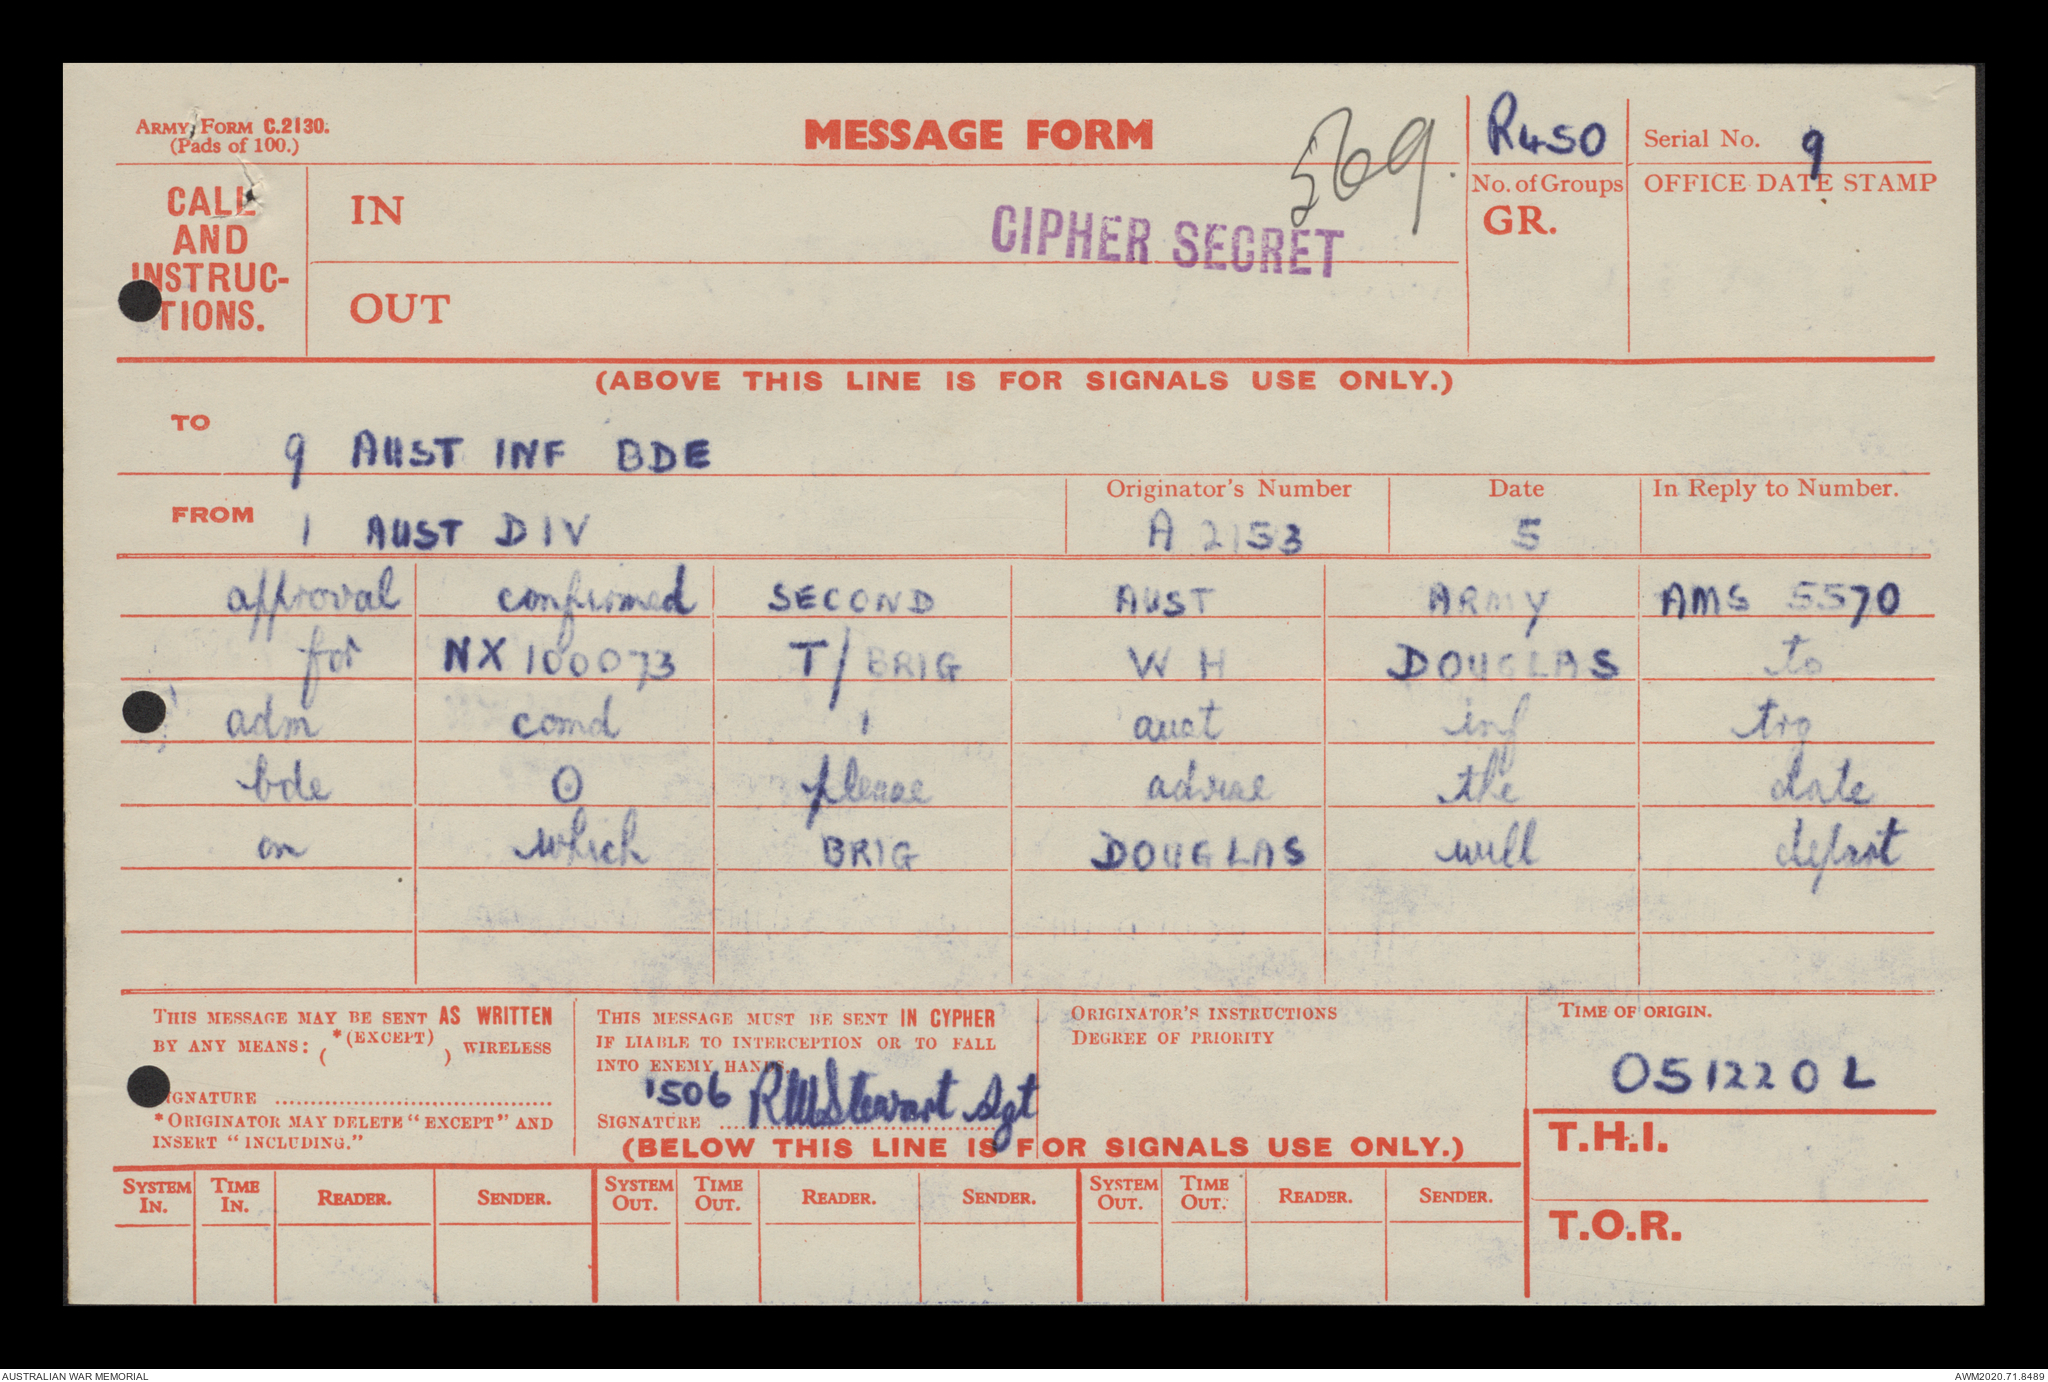 ARMY FORM C.2130.
(Pads of 100.)
MESSAGE FORM
569.
R450
Serial No. 9
CALL
AND
INSTRUC-
TIONS.
IN
CIPHER SECRET
No. of Groups
GR.
OFFICE DATE STAMP
OUT
(ABOVE THIS LINE IS FOR SIGNALS USE ONLY.)
TO
9 AUST INF BDE
FROM 1 AUST DIV
Originator's Number
A 2153
Date
5
In Reply to Number.
approval confirmed SECOND AUST ARMY AMS 5570
for NX100073 T/BRIG W H DOUGLAS to
adm comd 1 aust inf trg
bde O please advise the date
on which BRIG DOUGLAS will depart
THIS MESSAGE MAY BE SENT AS WRITTEN
BY ANY MEANS: *(EXCEPT) WIRELESS
( )
SIGNATURE
*ORIGINATOR MAY DELETE "EXCEPT" AND
INSERT "INCLUDING."
THIS MESSAGE MUST BE SENT IN CYPHER
IF LIABLE TO INTERCEPTION OR TO FALL
INTO ENEMY HANDS.
1506 RWStewart Sgt
SIGNATURE
ORIGINATOR'S INSTRUCTIONS
DEGREE OF PRIORITY
TIME OF ORIGIN.
051220L
(BELOW THIS LINE IS FOR SIGNALS USE ONLY.)
T.H.I.
T.O.R.
SYSTEM IN. TIME IN. READER. SENDER. SYSTEM OUT. TIME OUT. READER. SENDER. SYSTEM OUT. TIME OUT. READER. SENDER.
AUSTRALIAN WAR MEMORIAL
AWM2020.71.8489